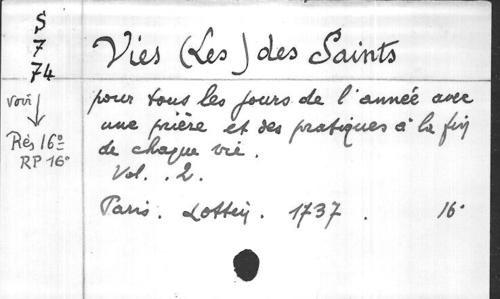 S
7
74
Vies (Les) des Saints
voir
Rés 16º
RP 16º
pour tous les jours de l'année avec
une prière et des pratiques à la fin
de chaque vie.
Vol. . 2.
Paris. Lottin. 1737. 16º